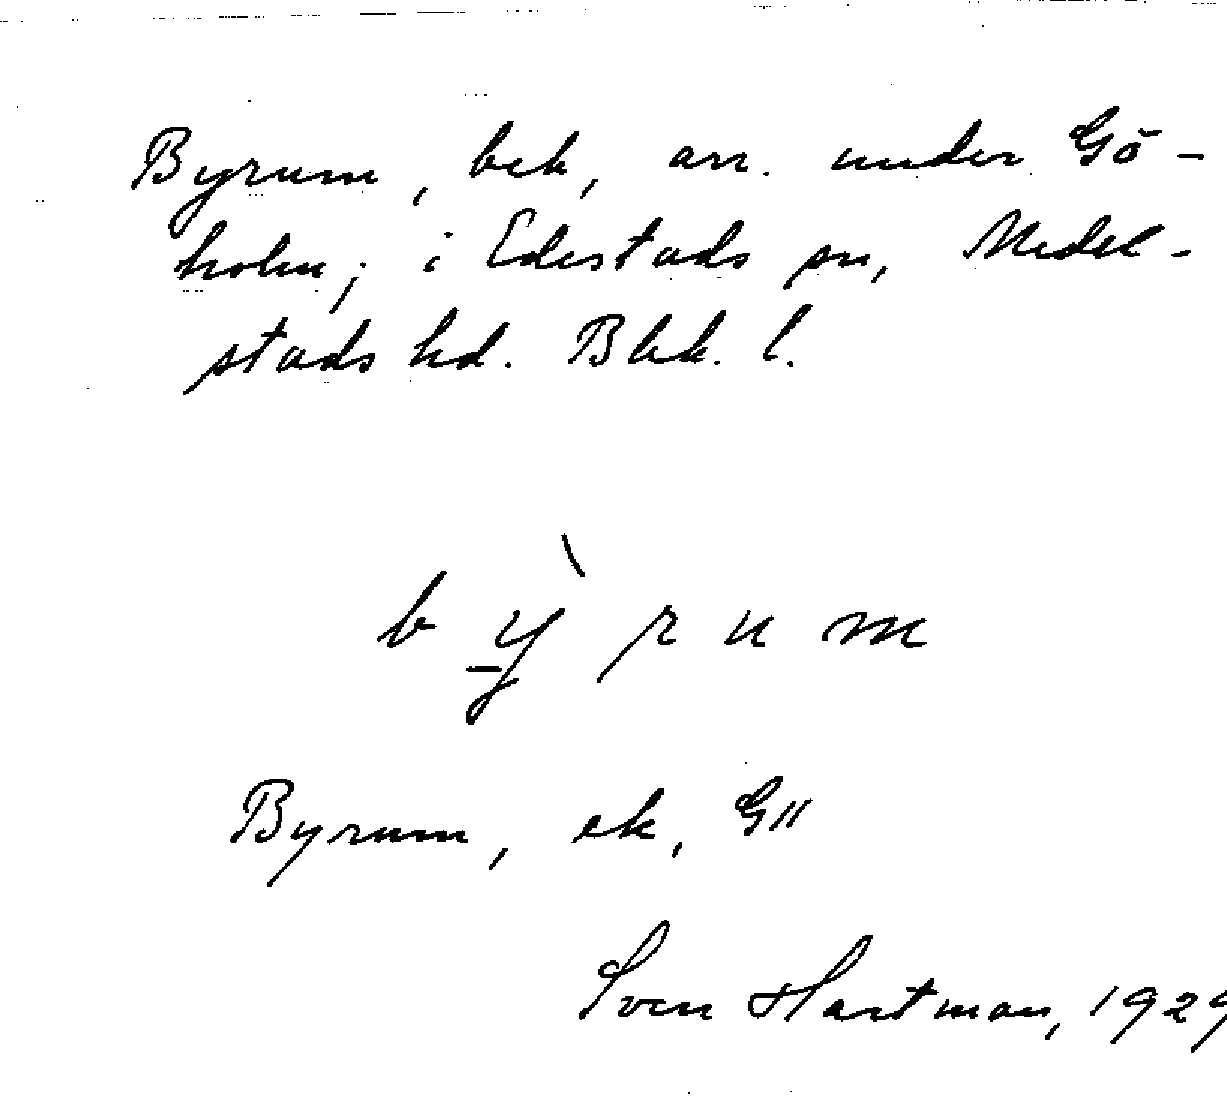 Byrum, bek, arr. under Gö-
holm; i Edestads sn, Medel-
stads hd. Blek. l.
bỳrum
Byrum, ek, G11
Sven Hartman, 1929